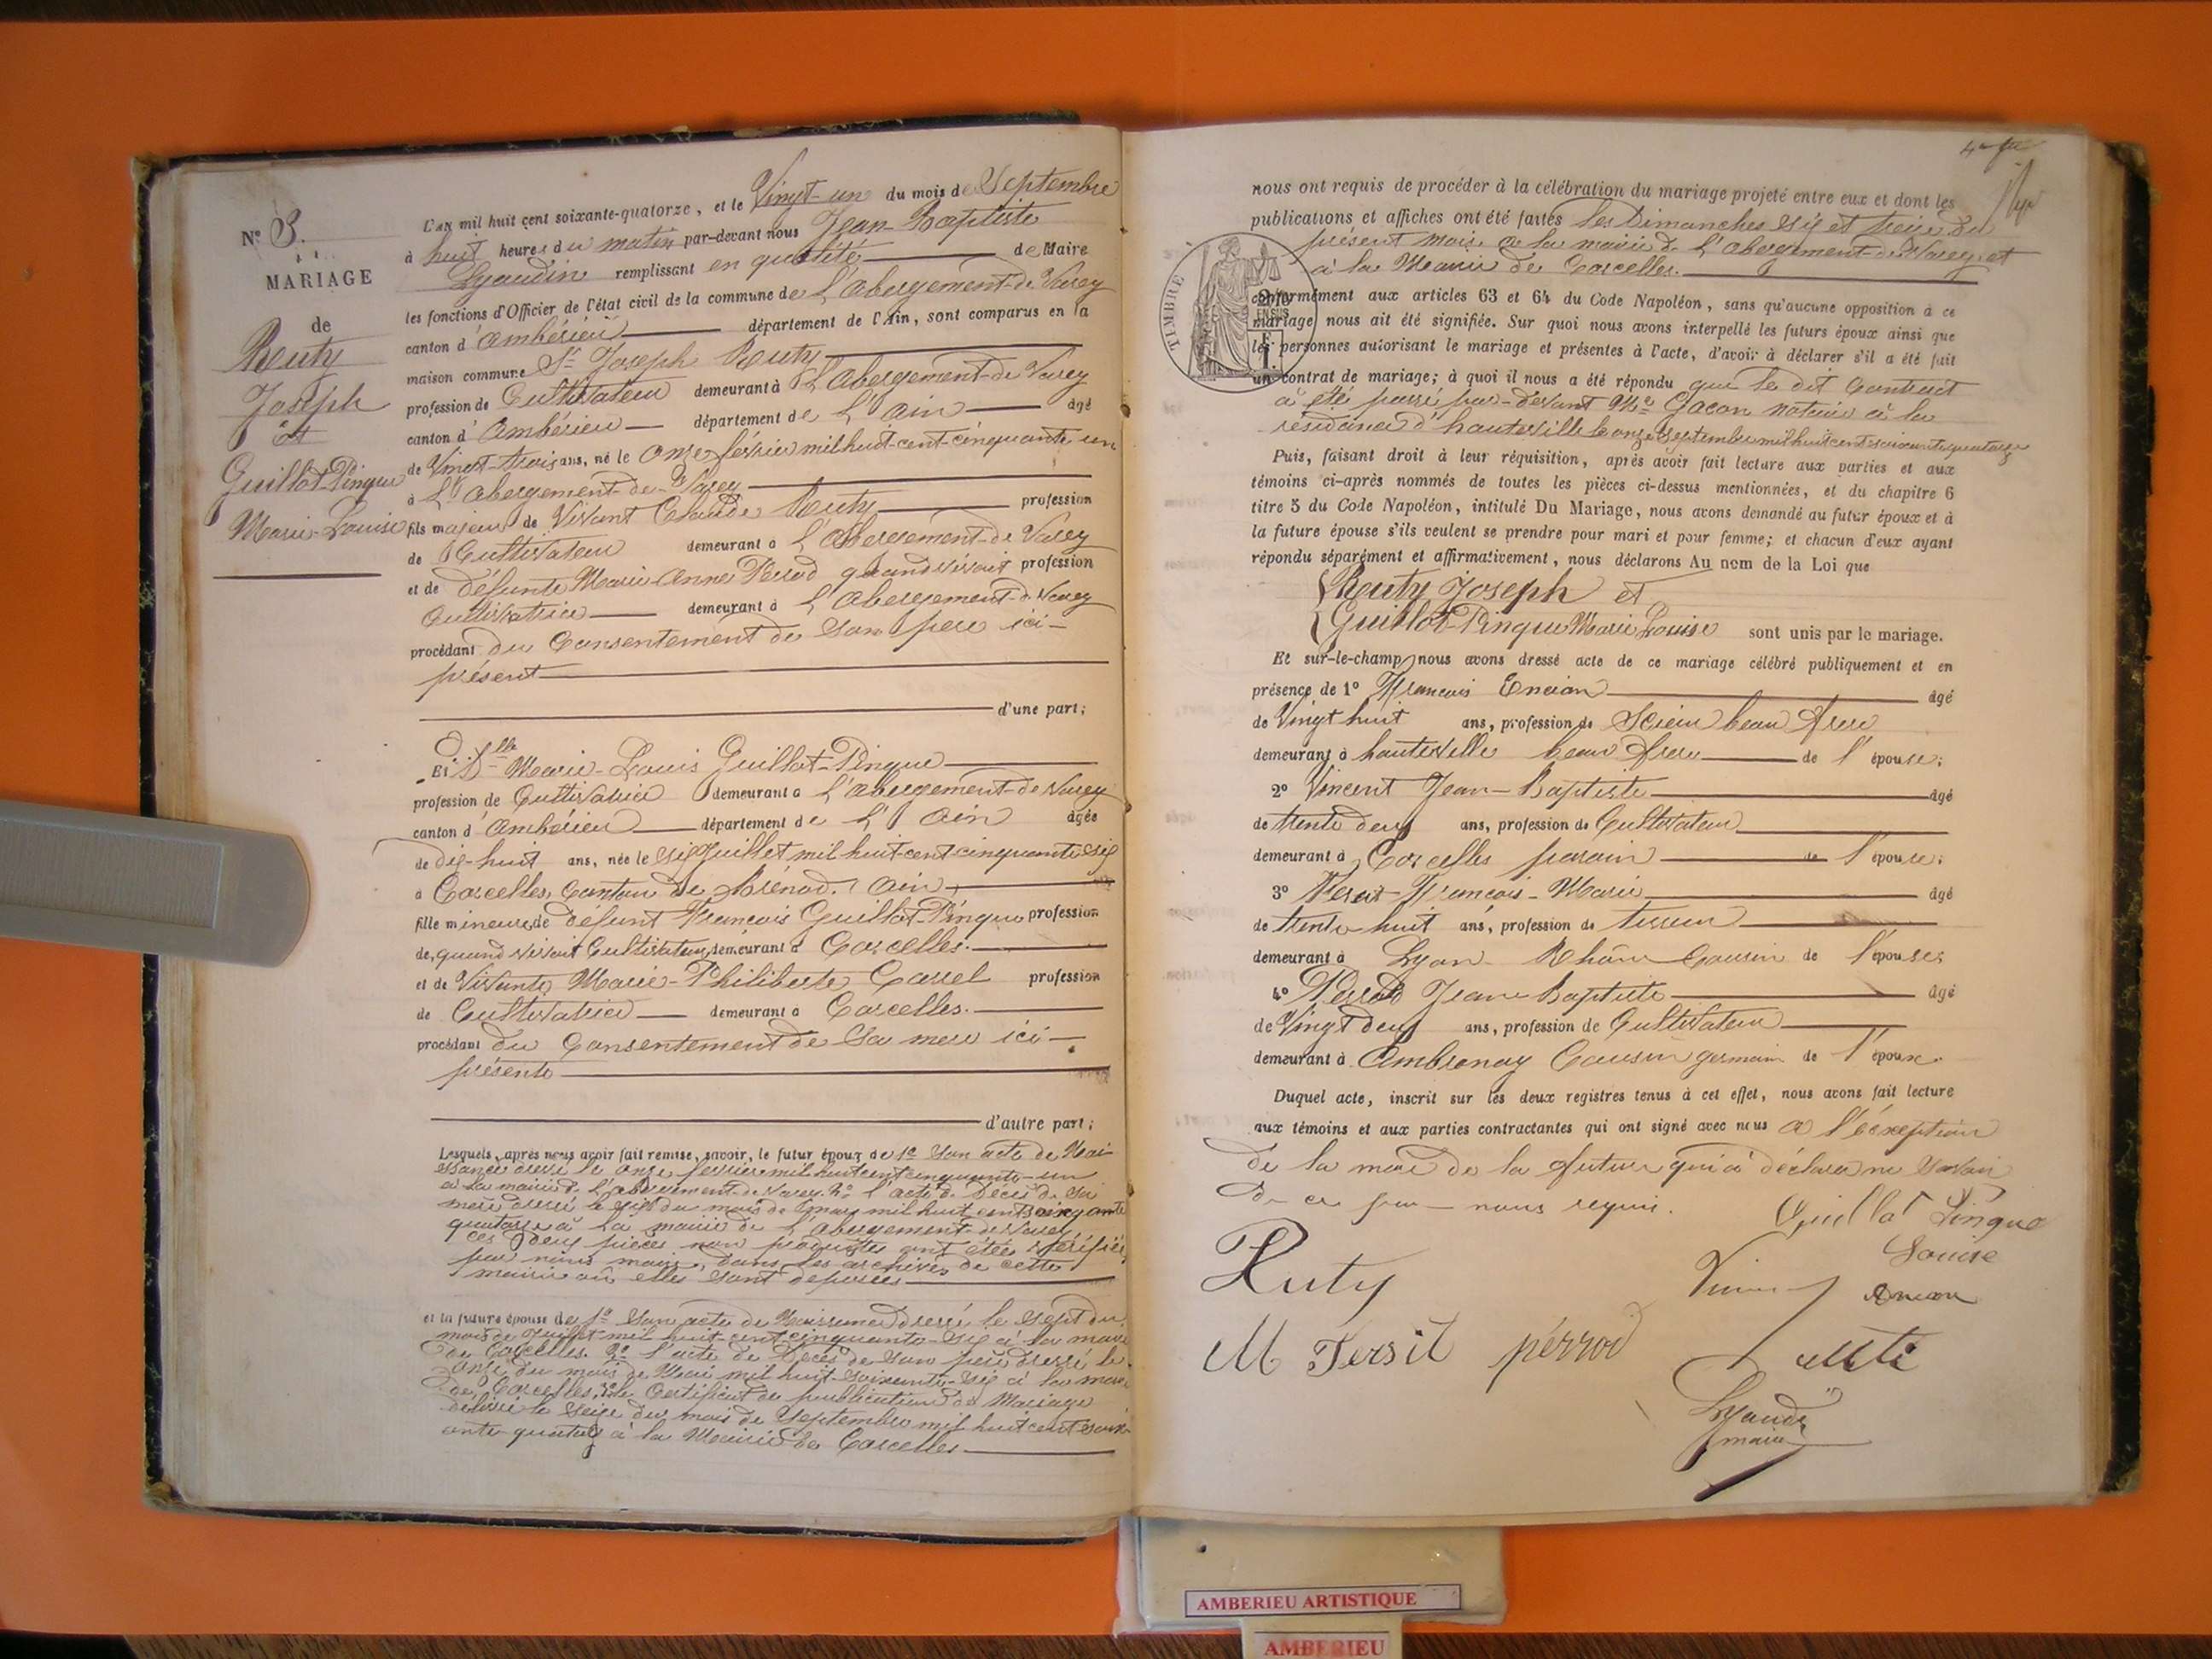 Nº 3.
MARIAGE
de
Reuty
Joseph
et
Guillot-Pingue
Marie-Louise
L'an mil huit cent soixante-quatorze, et le Vingt-un du mois de Septembre
à huit heures du matin par-devant nous Jean-Baptiste
Lyaudin remplissant en qualité de Maire
les fonctions d'Officier de l'état civil de la commune de L'abergement-de-Varey
canton d'Ambérieu département de l'Ain, sont comparus en la
maison commune Sr Joseph Reuty
profession de Cultivateur demeurant à L'Abergement-de Varey
canton d'Ambérieu département de L'Ain âgé
de Vingt-trois ans, né le onze février mil huit-cent-cinquante un
à L'Abergement-de-Varey
fils majeur de Vivant Claude Reuty profession
de Cultivateur demeurant à L'Abergement-de Varey
et de défunte Marie Anne Perod quand vivait profession
Cultivatrice demeurant à L'Abergement-de Varey
procédant du Consentement de Son père ici-
présent
d'une part;
Et Dlle Marie-Louis Guillot-Pingue
profession de Cultivatrice demeurant à L'abergement-de Varey
canton d'Ambérieu département de L'Ain âgée
de dix-huit ans, née le six Juillet mil huit-cent cinquante six
à Corcelles, Canton de Brénod. Ain,
fille mineure de défunt François Guillot-Pingue profession
de, quand vivait Cultivateur, demeurant à Corcelles.
et de Vivante Marie-Philiberte Carrel profession
de Cultivatrice demeurant à Corcelles.
procédant du Consentement de Sa mère ici-
présente
d'autre part;
Lesquels, après nous avoir fait remise, savoir, le futur époux de 1º Son acte de Nai-
ssance dressé le onze fevrier mil huit cent cinquante-un
à la mairie de L'abergement-de Varey. 2º L'acte de Décès de sa
mère dressé le six du mois de mars mil huit cent soixante
quatorze à la mairie de L'abergement-de Varey
ces deux pièces non produites ont étées vérifiées
par nous maire, dans les archives de cette
mairie où elles sont déposées
et la future épouse de 1º Son acte de Naissance dressé le sept du
mois de Juillet mil huit-cent cinquante-six à la mairie
de Corcelles. 2º L'acte de Décès de son père dressé le
onze du mois de Mai mil huit-soixante-six à la mairie
de Corcelles, 3º le Certificat de publication de Mariage
délivré le seize du mois de Septembre mil huit cent soix-
ante quatorze à la Mairie de Corcelles
nous ont requis de procéder à la célébration du mariage projeté entre eux et dont les
publications et affiches ont été faites les Dimanches Six et treize du
présent mois à la mairie de L'abergement-de Varey et
à la Mairie de Corcelles.
TIMBRE
conformément aux articles 63 et 64 du Code Napoléon, sans qu'aucune opposition à ce
mariage nous ait été signifiée. Sur quoi nous avons interpellé les futurs époux ainsi que
les personnes autorisant le mariage et présentes à l'acte, d'avoir à déclarer s'il a été fait
un contrat de mariage; à quoi il nous a été répondu que le dit Contract
à été passé par-devant Me Gacon notaire à la
résidance d'hauteville le onze Septembre mil huit cent soixante quatorze
Puis, faisant droit à leur réquisition, après avoir fait lecture aux parties et aux
témoins ci-après nommés de toutes les pièces ci-dessus mentionnées, et du chapitre 6
titre 5 du Code Napoléon, intitulé Du Mariage, nous avons demandé au futur époux et à
la future épouse s'ils veulent se prendre pour mari et pour femme; et chacun d'eux ayant
répondu séparément et affirmativement, nous déclarons Au nom de la Loi que
Reuty Joseph et
Guillot-Pingue Marie Louise sont unis par le mariage.
Et sur-le-champ nous avons dressé acte de ce mariage célébré publiquement et en
présence de 1º François Encian âgé
de Vingt huit ans, profession de Scieur beau frere
demeurant à hauteville beau frere de l'épouse;
2º Vincent Jean-Baptiste âgé
de trente deux ans, profession de Cultivateur
demeurant à Corcelles parain de l'épouse;
3º François-Marie âgé
de trente-huit ans, profession de tisseur
demeurant à Lyon-Rhône Cousin de l'épouse;
4º Perrod Jean Baptiste âgé
de Vingt deux ans, profession de Cultivateur
demeurant à Ambronay Cousin germain de l'époux.
Duquel acte, inscrit sur les deux registres tenus à cet effet, nous avons fait lecture
aux témoins et aux parties contractantes qui ont signé avec nous à l'éxception
de la mère de la future qui a déclaré ne savoir
de ce par nous requis.
Guillot Pingue
Louise
Ruty
M Tersit
pérrod
Lyaudin
maire
AMBERIEU ARTISTIQUE
AMBERIEU